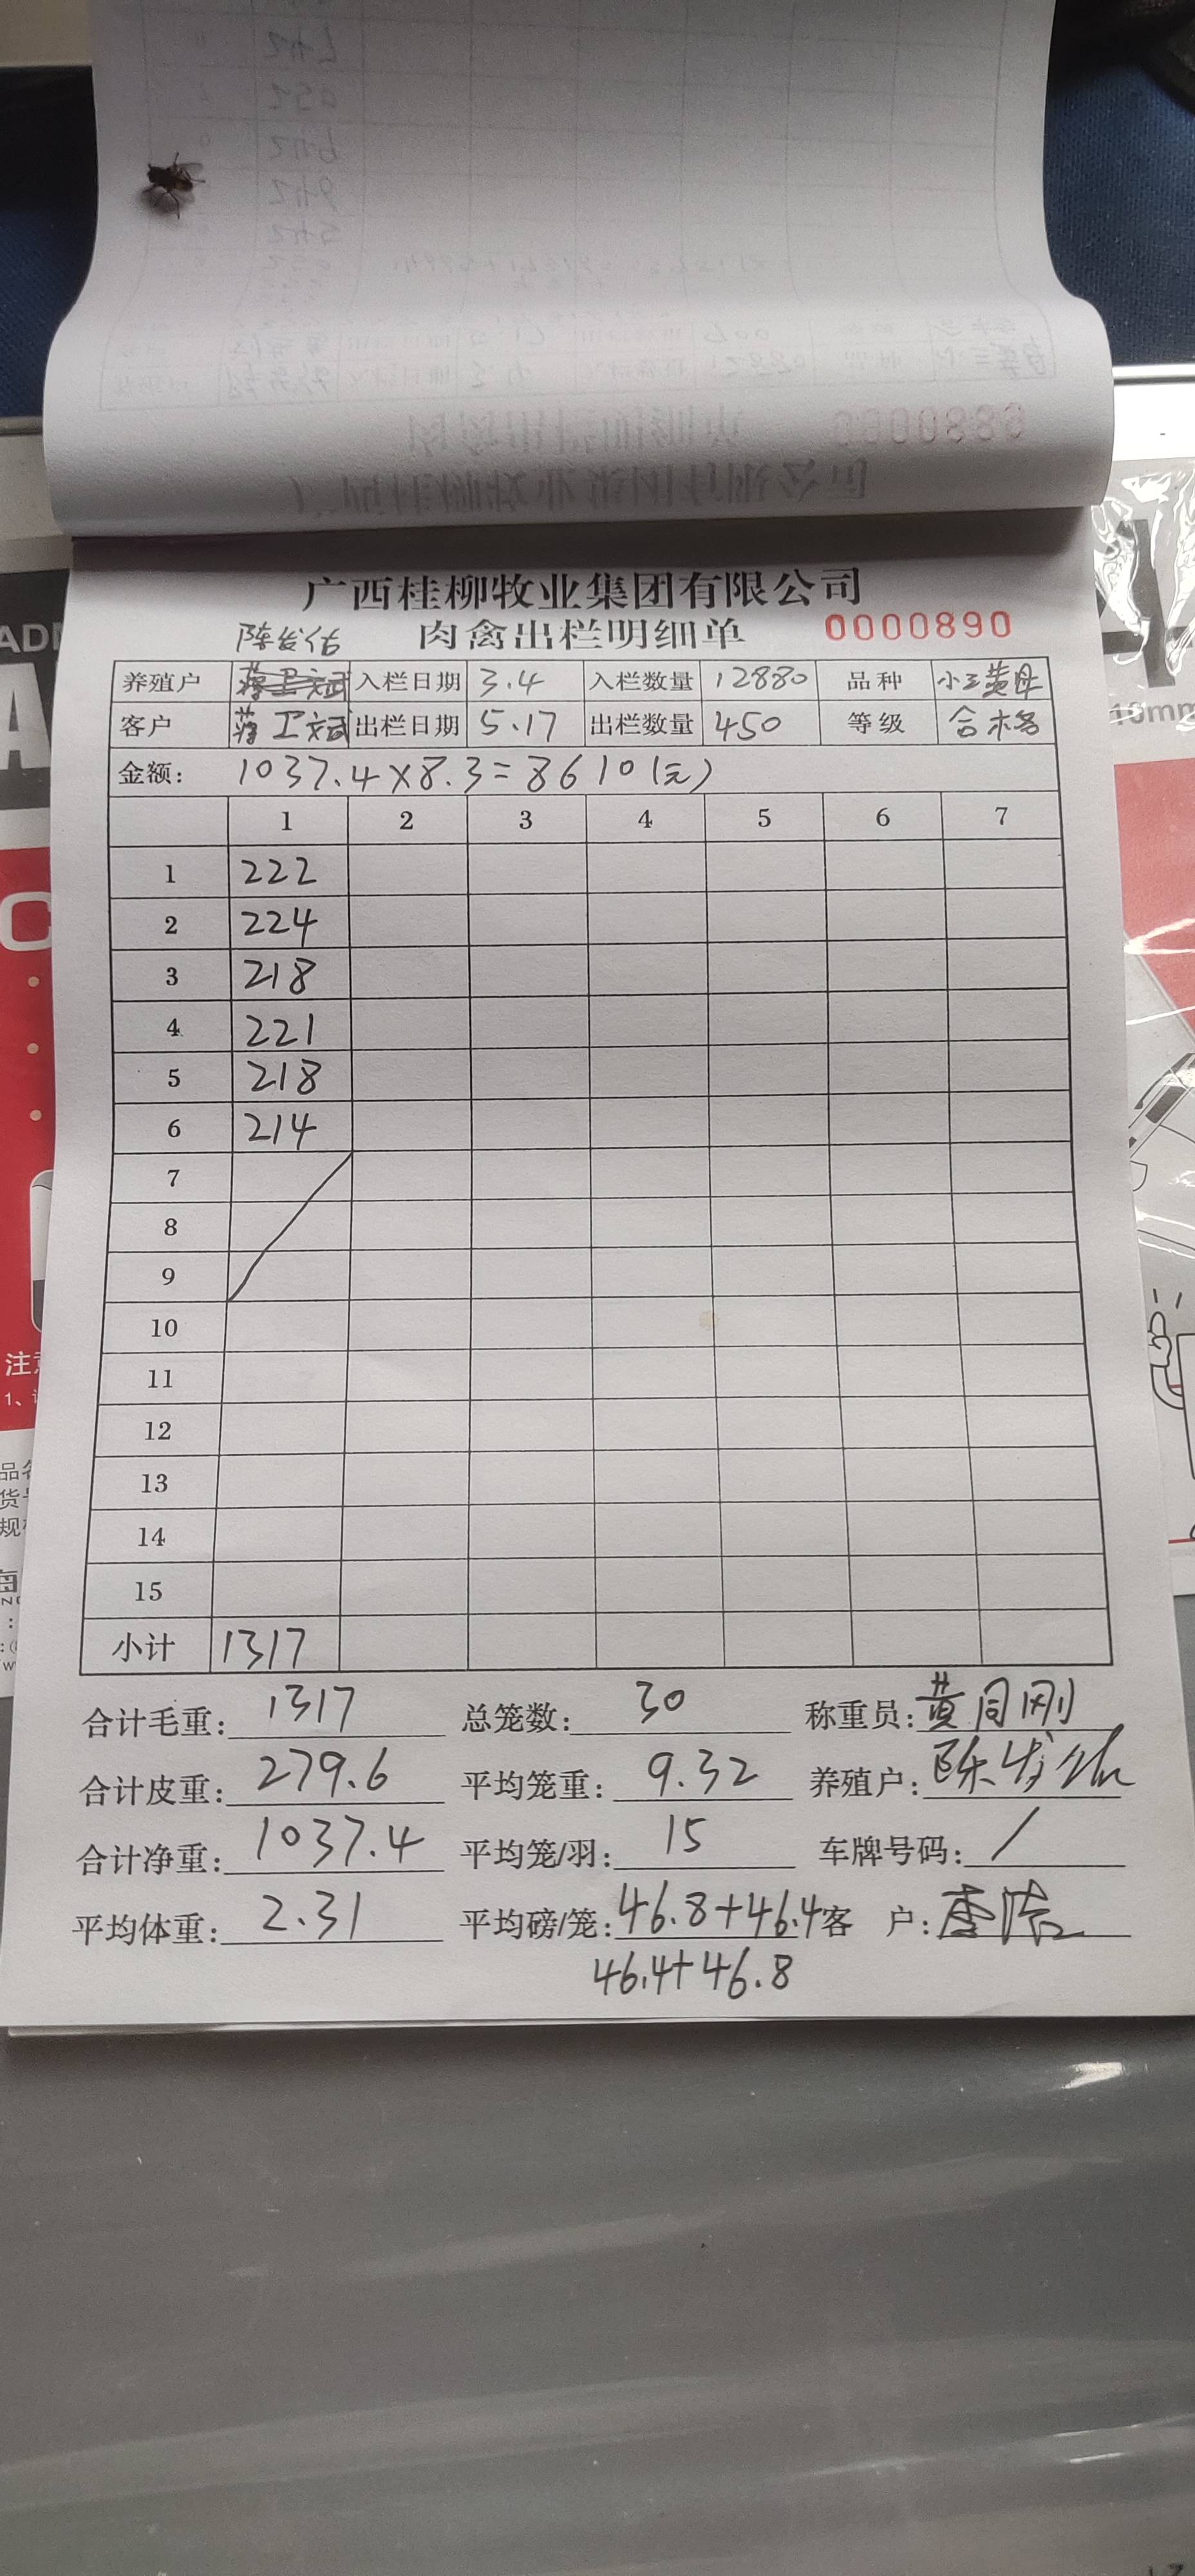 广西桂柳牧业集团有限公司
肉禽出栏明细单 0000890
陈发佑
养殖户 蒋卫文斌 入栏日期 3.4 入栏数量 12880 品种 小三黄母
客户 蒋卫文斌 出栏日期 5.17 出栏数量 450 等级 合格
金额: 1037.4×8.3=8610(元)
1 2 3 4 5 6 7
1 222
2 224
3 218
4 221
5 218
6 214
7
8
9
10
11
12
13
14
15
小计 1317
合计毛重: 1317 总笼数: 30 称重员: 黄同刚
合计皮重: 279.6 平均笼重: 9.32 养殖户: 陈发佑
合计净重: 1037.4 平均笼/羽: 15 车牌号码: /
平均体重: 2.31 平均磅/笼: 46.8+46.4 客 户:
46.4+46.8
10mm
注意
1、
品名
货号
规格